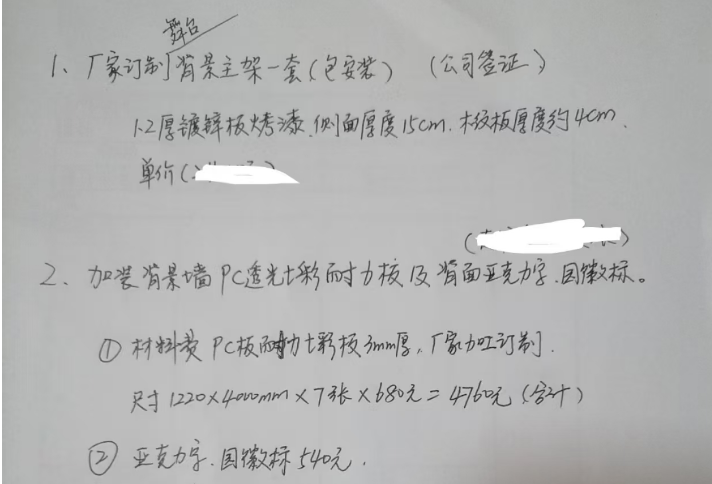 舞台
1、厂家订制背景主架一套(包安装) (公司签证)
1.2厚镀锌板烤漆.侧面厚度15cm.木纹板厚度约4cm.
单价(
2、加装背景墙PC透光七彩耐力板及背面亚克力字.国徽标。
① 材料费 PC板耐力七彩板3mm厚,厂家加工订制.
尺寸1220×4000mm×7张×680元=4760元(合计)
② 亚克力字.国徽标540元.